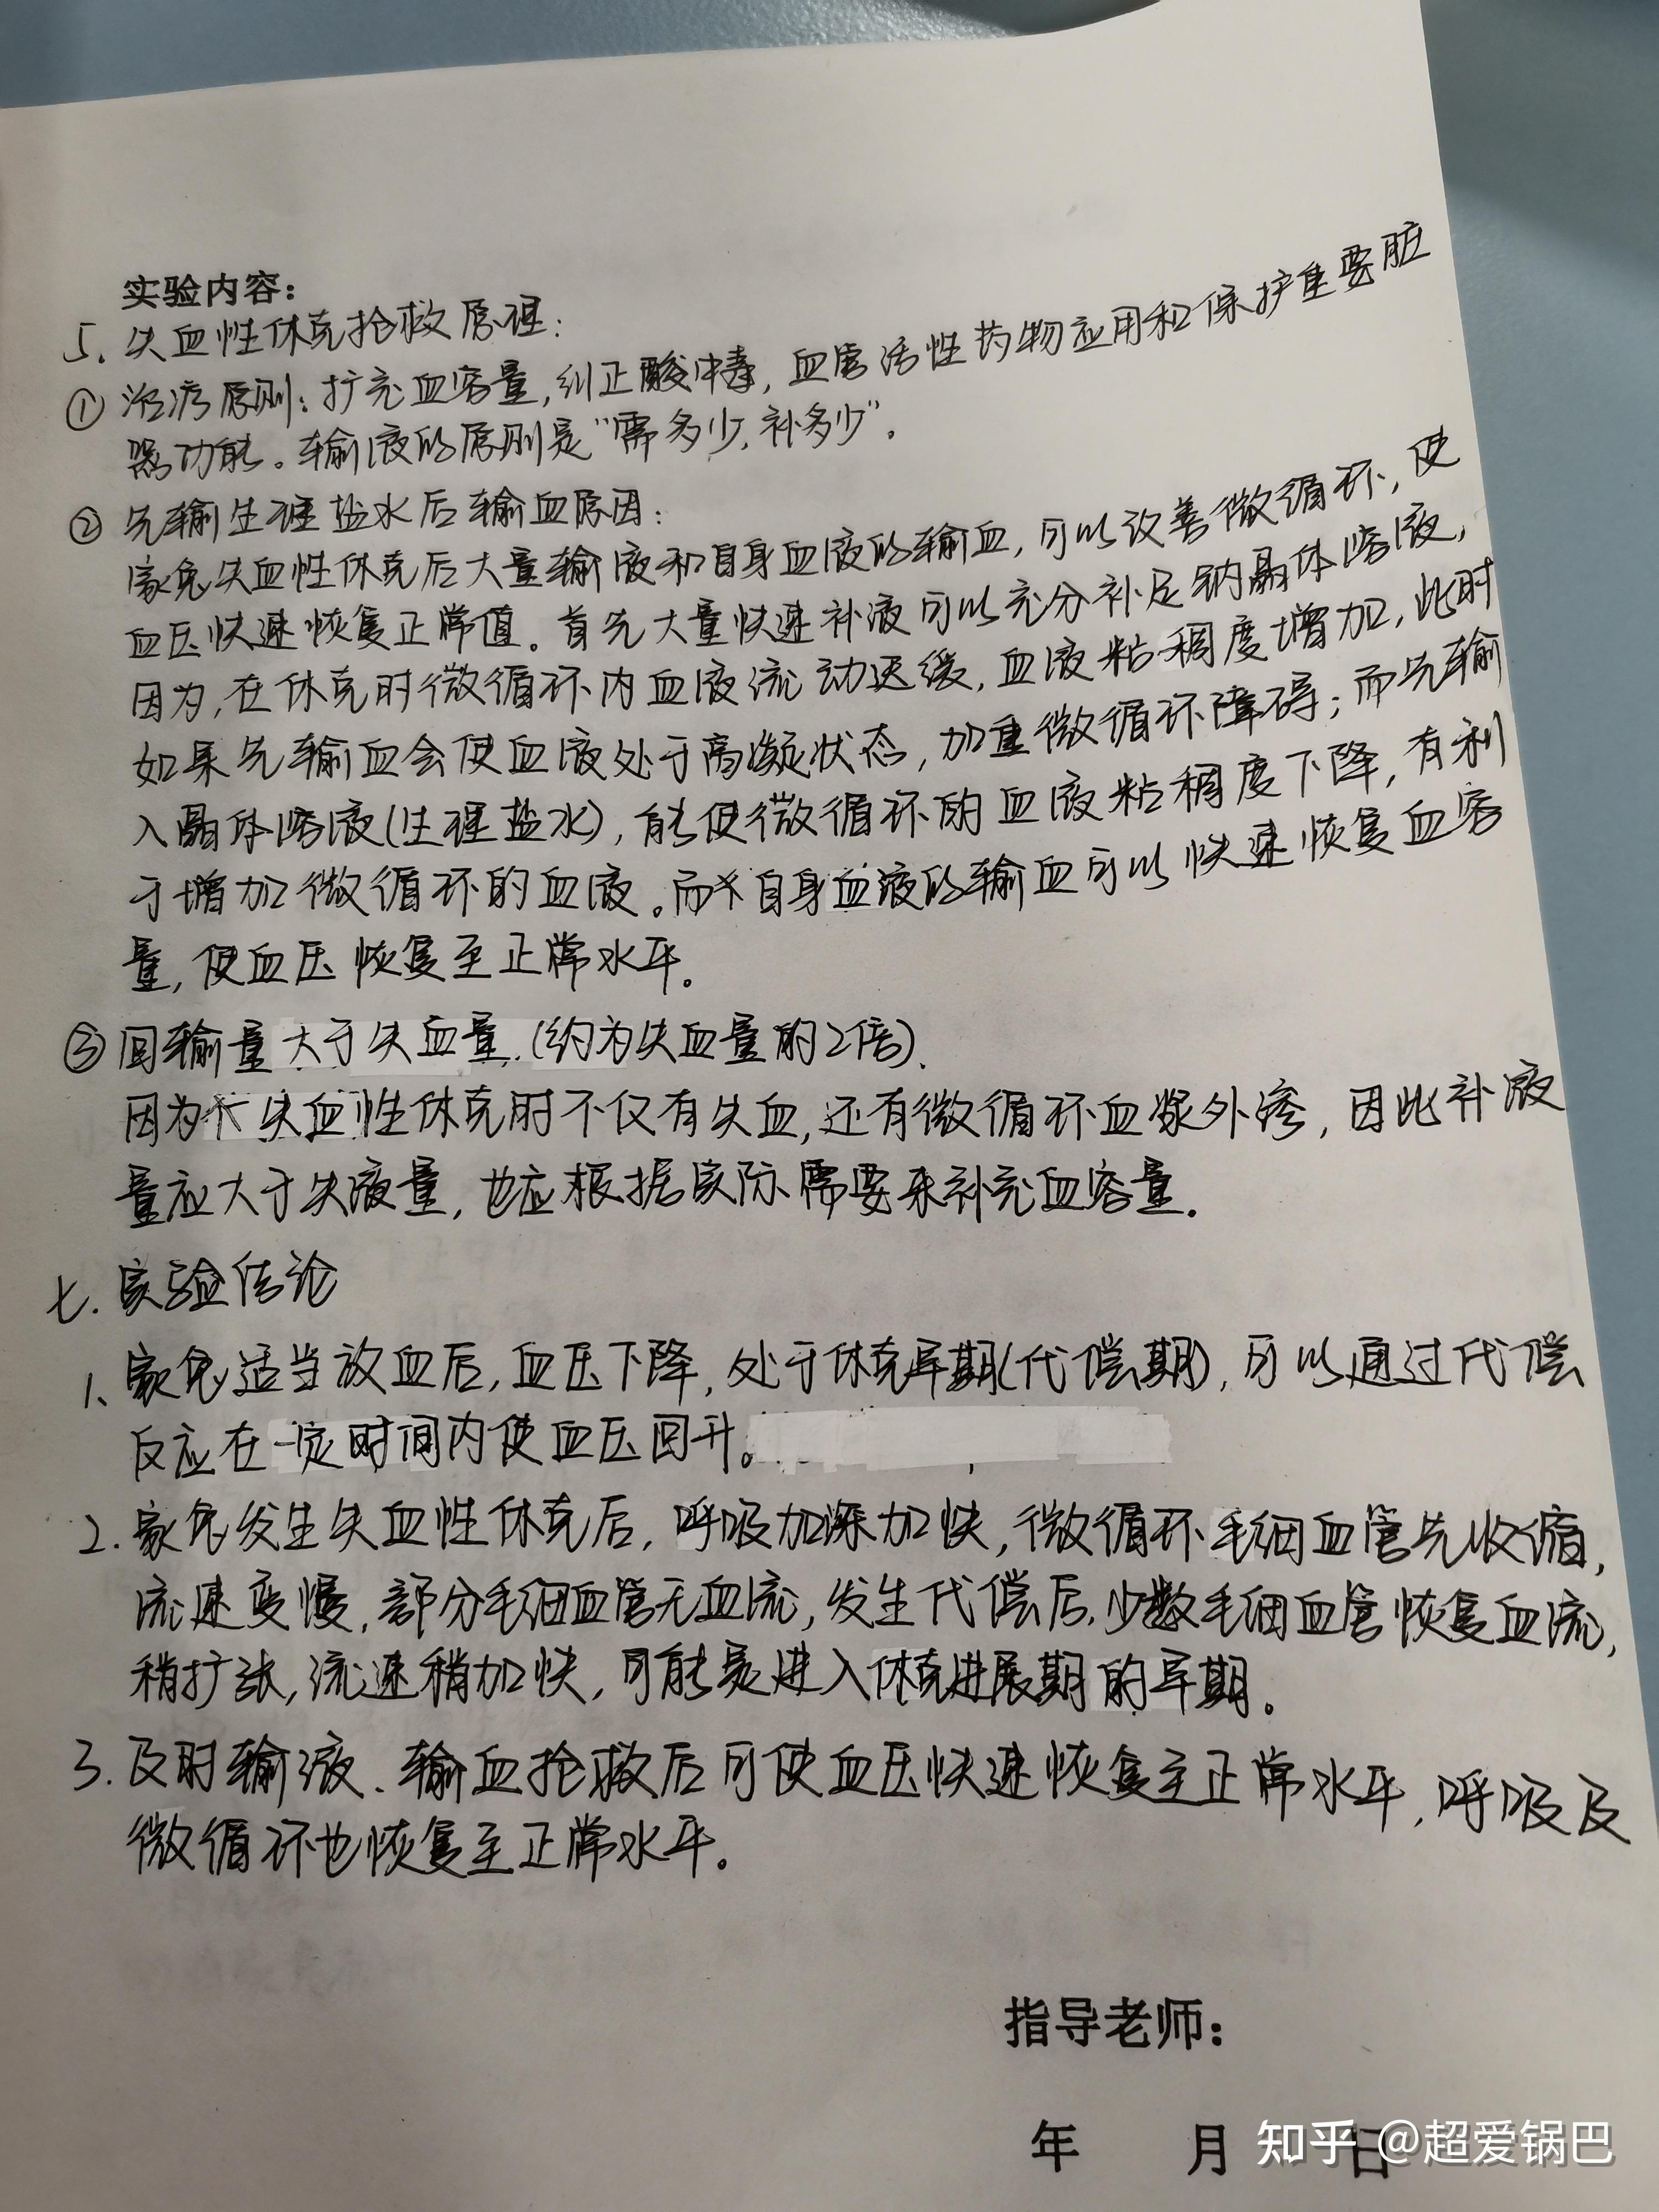 实验内容:
5. 失血性休克抢救原理:
① 治疗原则: 扩充血容量, 纠正酸中毒, 血管活性药物应用和保护重要脏
器功能。输液的原则是“需多少, 补多少”。
② 先输生理盐水后输血原因:
家兔失血性休克后大量输液和自身血液的输血, 可以改善微循环, 使
血压快速恢复正常值。首先大量快速补液可以充分补足钠晶体溶液,
因为, 在休克时微循环内血液流动迟缓, 血液粘稠度增加, 此时
如果先输血会使血液处于高凝状态, 加重微循环障碍; 而先输
入晶体溶液(生理盐水), 能使微循环的血液粘稠度下降, 有利
于增加微循环的血液。而自身血液的输血可以快速恢复血容
量, 使血压恢复至正常水平.
③ 回输量大于失血量.(约为失血量的2倍).
因为失血性休克时不仅有失血, 还有微循环血浆外渗, 因此补液
量应大于失液量, 也应根据实际需要来补充血容量.
七. 实验结论
1、家兔适当放血后, 血压下降, 处于休克早期(代偿期), 可以通过代偿
反应在一定时间内使血压回升。
2. 家兔发生失血性休克后, 呼吸加深加快, 微循环毛细血管先收缩,
流速变慢, 部分毛细血管无血流, 发生代偿后, 少数毛细血管恢复血流,
稍扩张, 流速稍加快, 可能是进入休克进展期的早期。
3. 及时输液、输血抢救后可使血压快速恢复至正常水平, 呼吸及
微循环也恢复至正常水平。
指导老师:
年 月 日
知乎 @超爱锅巴